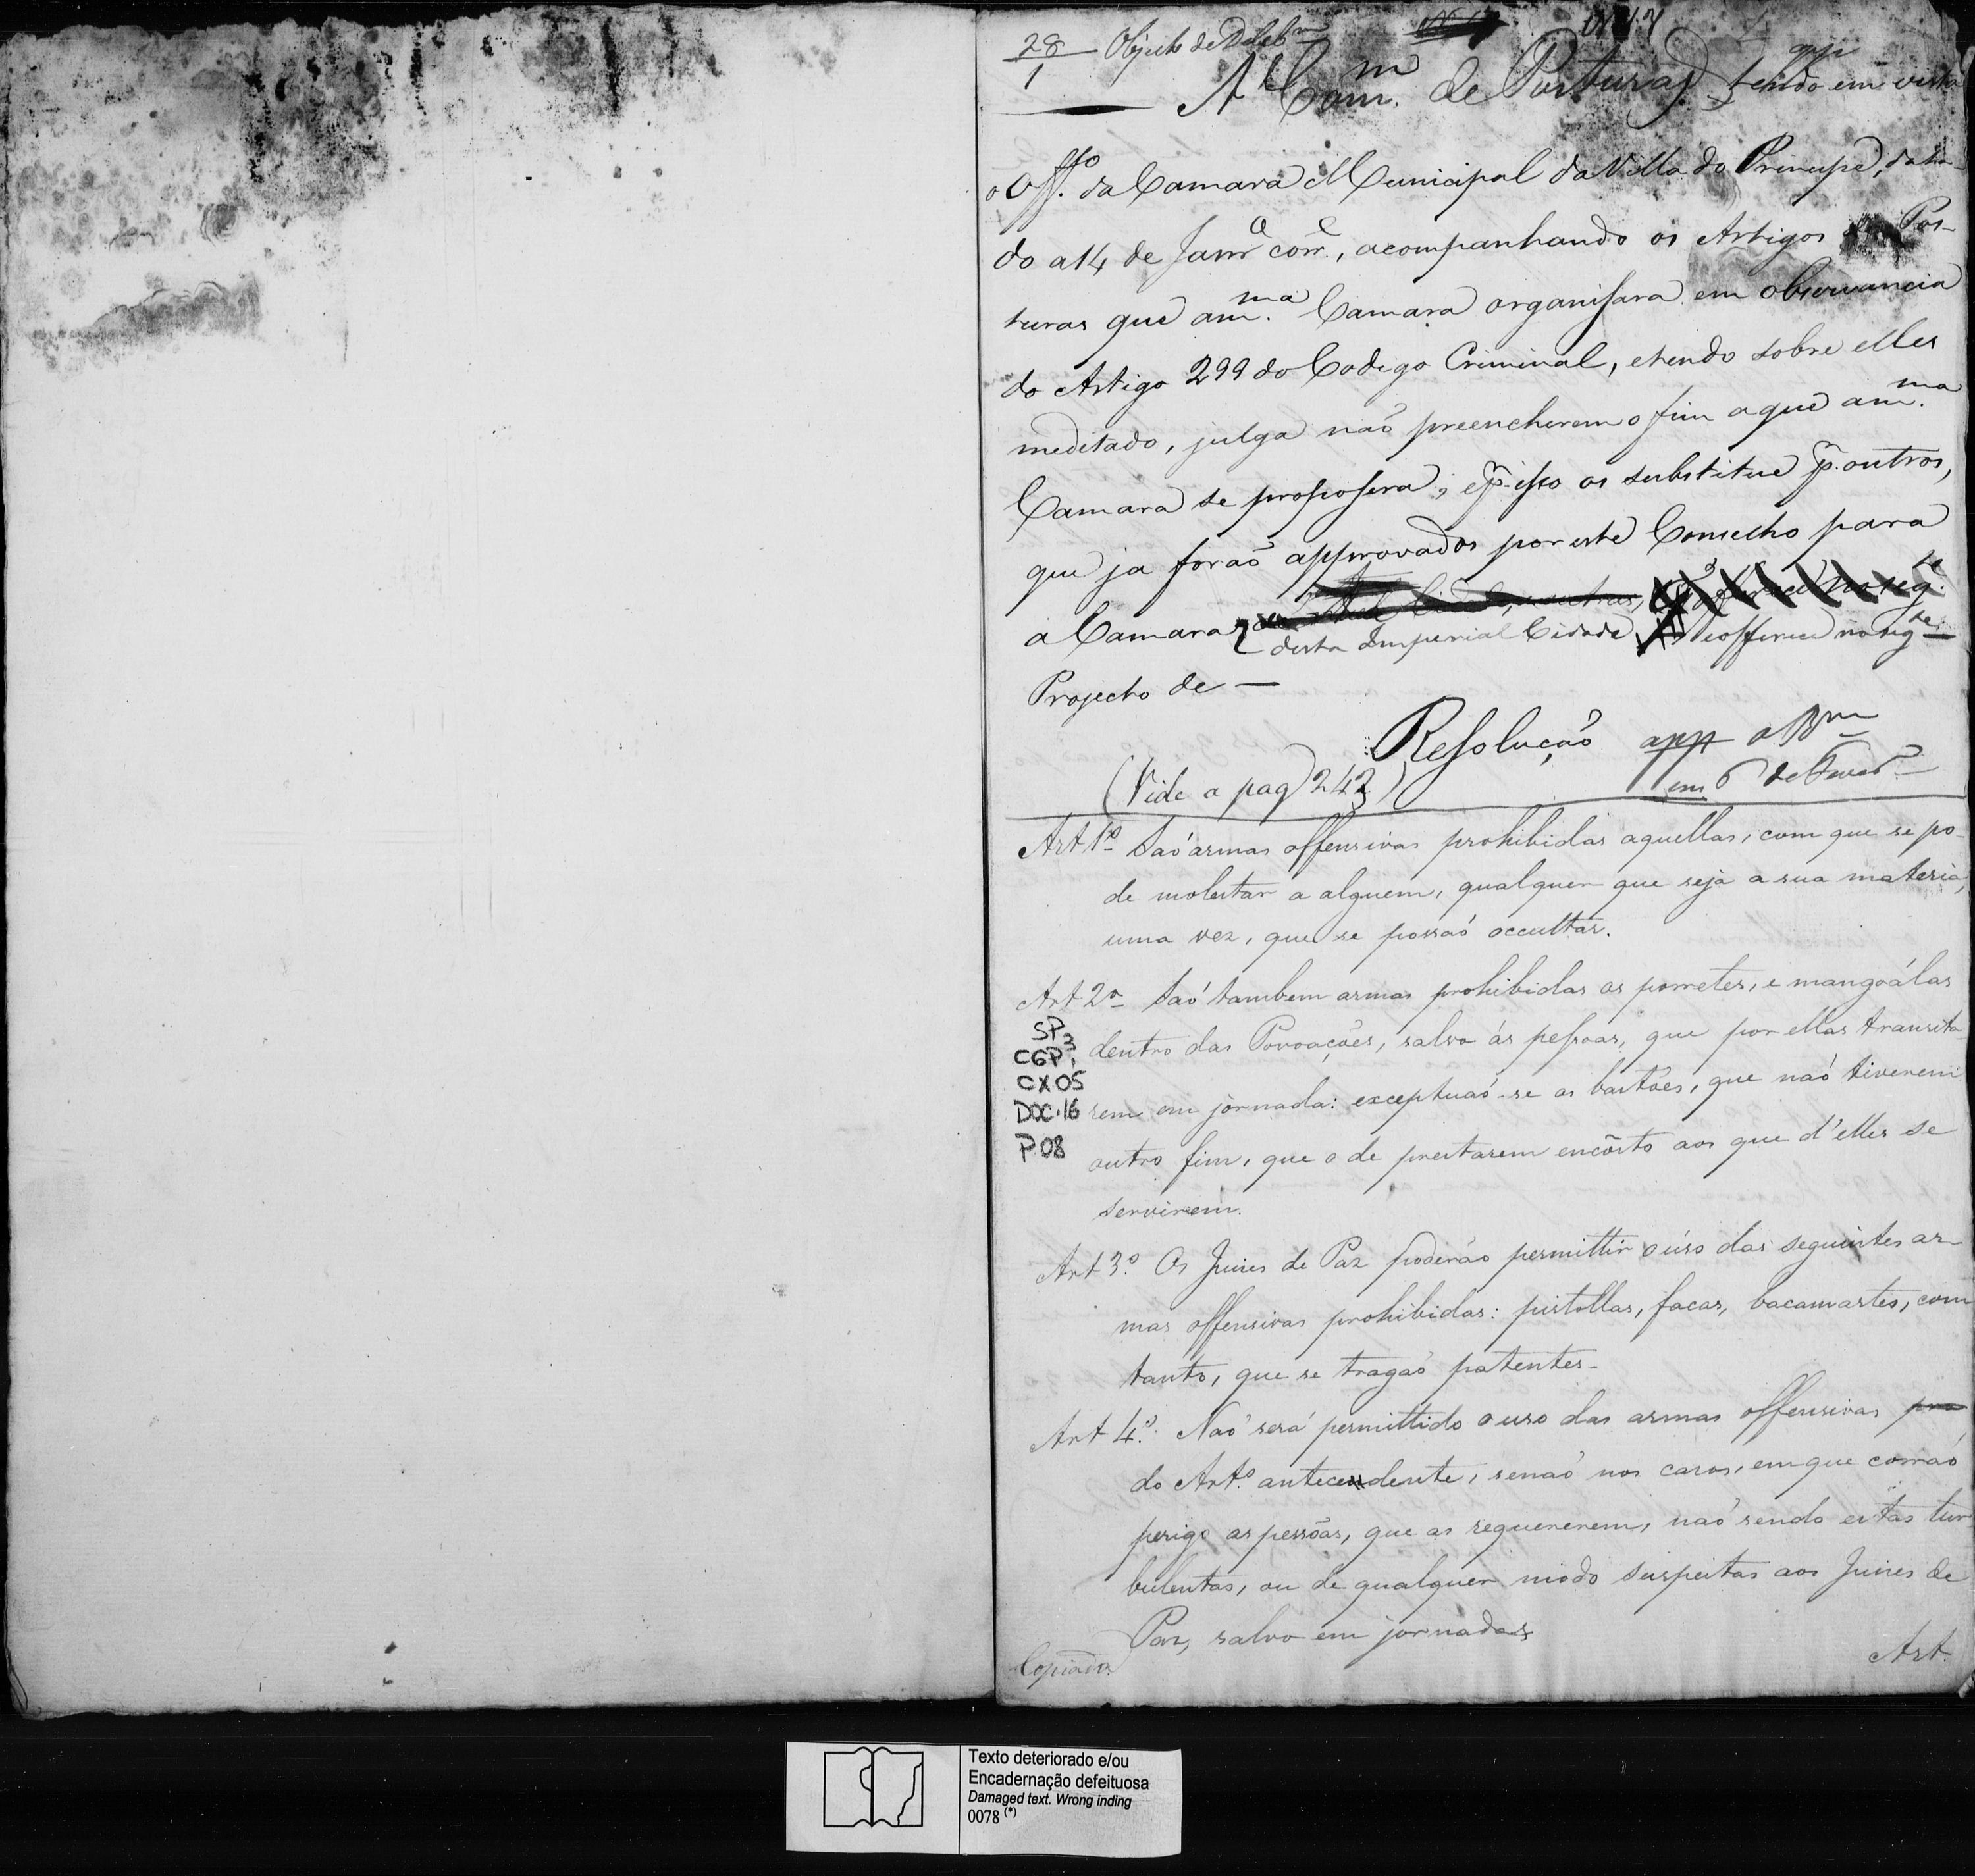 28/1 Objecto de Delib.m N 17
A Com.m de Posturas, tendo em vista
o Off.o da Camara Municipal da Villa do Principe, data-
do a 14 de Janr.o corr.e, acompanhando os Artigos de Pos-
turas que a m.ma Camara organisara em observancia
do Artigo 299 do Codigo Criminal, e tendo sobre elles
meditado, julga naõ preencherem o fim a que a m.ma
Camara se proposera; e p.r isso os substitue p.r outros,
que ja foraõ approvados por este Conselho para
a Camara
desta Imperial Cidade e offerece no seg.te
Projecto de —
Resolução app a R.m
(Vide a pag 242) em 6 de Fever.o
Art 1.o Saõ armas offensivas prohibidas aquellas, com que se po-
de molestar a alguem, qualquer que seja a sua materia,
uma vez, que se possaõ occultar.
Art 2.o Saõ tambem armas prohibidas os porretes, e mangoálas
dentro das Povoações, salvo ás pessoas, que por ellas transita
rem em jornada: exceptuaõ-se os bastões, que naõ tiverem
outro fim, que o de prestarem encôsto aos que d'elles se
servirem.
SP
CGP1
CX.05
DOC.16
P.08
Art 3.o Os Juizes de Paz poderáõ permittir o úso das seguintes ar-
mas offensivas prohibidas: pistollas, facas, bacamartes, com
tanto, que se tragaõ patentes.
Art 4.o Naõ será permittido o uso das armas offensivas pro
do Art.o antecendente, senaõ nos casos, em que corraõ
perigo as pessôas, que as requererem, naõ sendo estas tur
bulentas, ou de qualquer modo suspeitas aos Juizes de
Paz, salvo em jornadas
Copiada Art.
Texto deteriorado e/ou
Encadernação defeituosa
Damaged text. Wrong inding
0078 (*)